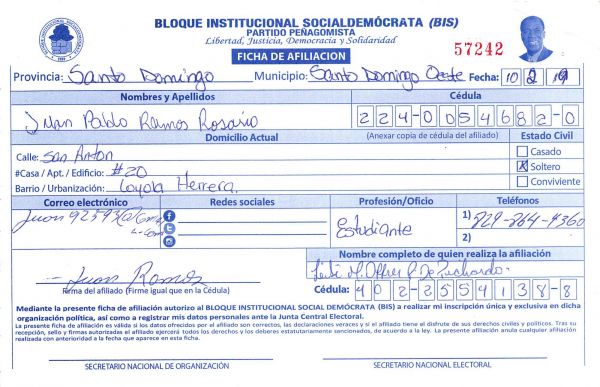 BLOQUE INSTITUCIONAL SOCIALDEMÓCRATA (BIS)
PARTIDO PEÑAGOMISTA
Libertad, Justicia, Democracia y Solidaridad
FICHA DE AFILIACION
57242
Provincia: Santo Domingo Municipio: Santo Domingo Oeste Fecha: 10 2 19
Nombres y Apellidos Cédula
Juan Pablo Ramos Rosario 224-0054682-0
Domicilio Actual (Anexar copia de cédula del afiliado) Estado Civil
Calle: San Anton Casado
#Casa / Apt. / Edificio: #20 Soltero
Barrio / Urbanización: Loyola Herrera. Conviviente
Correo electrónico Redes sociales Profesión/Oficio Teléfonos
Estudiante 1) 829-864-4360
2)
Nombre completo de quien realiza la afiliación
Juan Ramos
Firma del afiliado (Firme igual que en la Cédula) Cédula: 402-2554138-8
Mediante la presente ficha de afiliación autorizo al BLOQUE INSTITUCIONAL SOCIAL DEMÓCRATA (BIS) a realizar mi inscripción única y exclusiva en dicha
organización política, así como a registrar mis datos personales ante la Junta Central Electoral.
La presente ficha de afiliación es válida si los datos ofrecidos por el afiliado son correctos, las declaraciones veraces y si el afiliado tiene el disfrute de sus derechos civiles y políticos. Tras su
recepción, sello y firmas autorizadas el afiliado ejercerá todos los derechos y los deberes estatutariamente sancionados, de acuerdo a la ley. La presente afiliación anula cualquier afiliación
realizada con anterioridad a la fecha que aparece en esta ficha.
SECRETARIO NACIONAL DE ORGANIZACIÓN SECRETARIO NACIONAL ELECTORAL